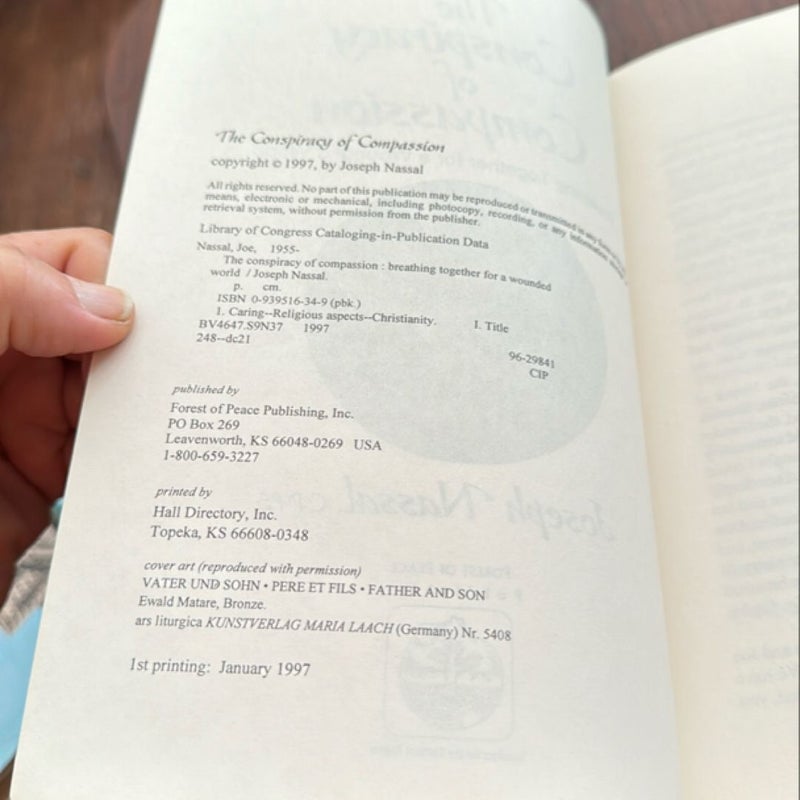 The Conspiracy of Compassion
copyright © 1997, by Joseph Nassal
All rights reserved. No part of this publication may be reproduced or transmitted in any form or by any
means, electronic or mechanical, including photocopy, recording, or any information
retrieval system, without permission from the publisher.
Library of Congress Cataloging-in-Publication Data
Nassal, Joe, 1955-
The conspiracy of compassion : breathing together for a wounded
world / Joseph Nassal.
p. cm.
ISBN 0-939516-34-9 (pbk.)
1. Caring--Religious aspects--Christianity. I. Title
BV4647.S9N37 1997
248--dc21
96-29841
CIP
published by
Forest of Peace Publishing, Inc.
PO Box 269
Leavenworth, KS 66048-0269 USA
1-800-659-3227
printed by
Hall Directory, Inc.
Topeka, KS 66608-0348
cover art (reproduced with permission)
VATER UND SOHN • PERE ET FILS • FATHER AND SON
Ewald Matare, Bronze.
ars liturgica KUNSTVERLAG MARIA LAACH (Germany) Nr. 5408
1st printing: January 1997